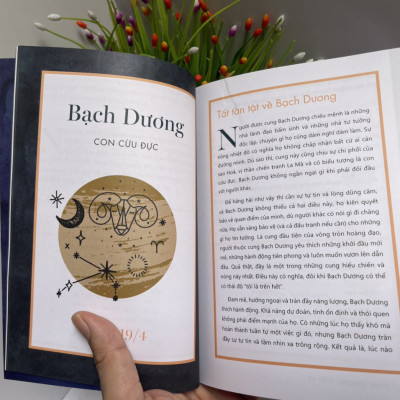 Bạch Dương
CON CỪU ĐỰC
19/4
Tất tần tật về Bạch Dương
Người được cung Bạch Dương chiếu mệnh là những
nhà lãnh đạo bẩm sinh và những nhà tư tưởng
độc lập, chuyện gì họ cũng dám nghĩ dám làm. Sự
nóng nhất đó có nghĩa họ không chấp nhận bất cứ ai cản
đường mình. Dù sao thì, cung này cũng chịu sự chi phối của
sao Hoả, vị thần chiến tranh La Mã và có biểu tượng là con
cừu đực. Bạch Dương không ngần ngại gì khi phải đối đầu
với người khác.
Để hăng hái như vậy thì cần sự tự tin và lòng dũng cảm,
và Bạch Dương không thiếu cả hai điều này, họ kiên quyết
bảo vệ quan điểm của mình, dù người khác có nói gì đi chăng
nữa. Họ sẵn sàng bảo vệ (và cả đấu tranh nếu cần) cho những
gì họ tin tưởng. Là cung đầu tiên của vòng tròn hoàng đạo,
người thuộc cung Bạch Dương yêu thích những khởi đầu mới
mẻ, những hành động tiên phong và luôn muốn vươn lên dẫn
đầu. Quả thật, đây là một trong những cung hiếu chiến và
nóng nảy nhất. Điều này có nghĩa, đôi khi Bạch Dương có thể
có thái độ “tôi là trên hết”.
Đam mê, hướng ngoại và tràn đầy năng lượng, Bạch Dương
thích hành động. Khả năng dự đoán, tính ổn định và thói quen
không phải điểm mạnh của họ. Có những lúc họ thấy khó mà
hoàn thành tuần tự một việc gì đó, nhưng Bạch Dương tràn
đầy sự tự tin và tầm nhìn xa trông rộng. Kết quả là, lúc nào